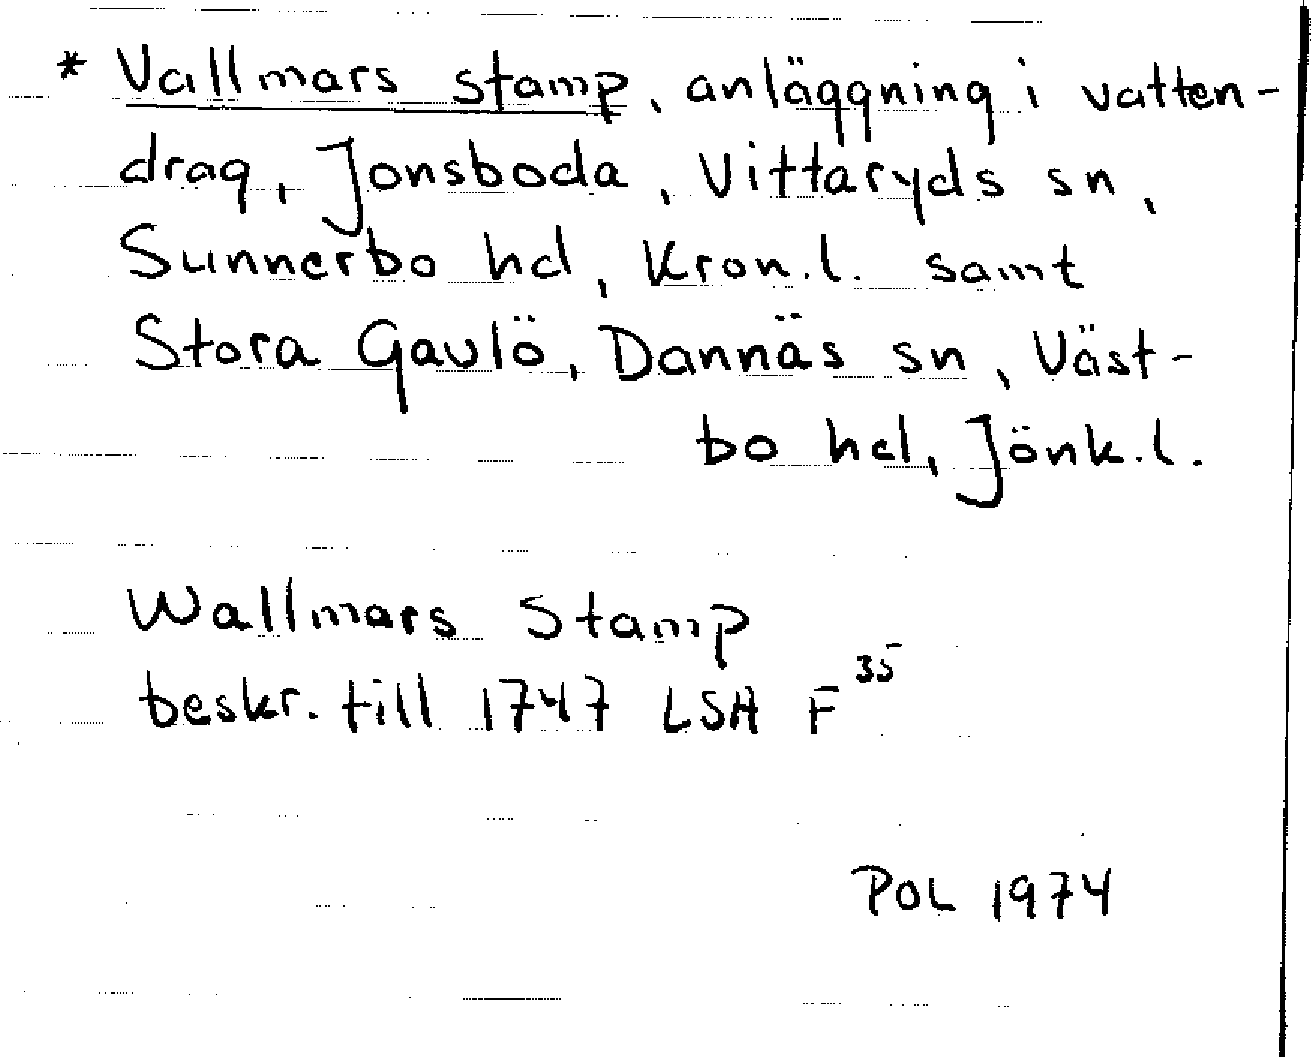 * Vallmars stamp, anläggning i vatten-
drag, Jonsboda, Vittaryds sn,
Sunnerbo hd, Kron.l. samt
Stora Gavlö, Dannäs sn, Väst-
bo hd, Jönk.l.
Wallmars Stamp
beskr. till 1747 LSA F 35
POL 1974